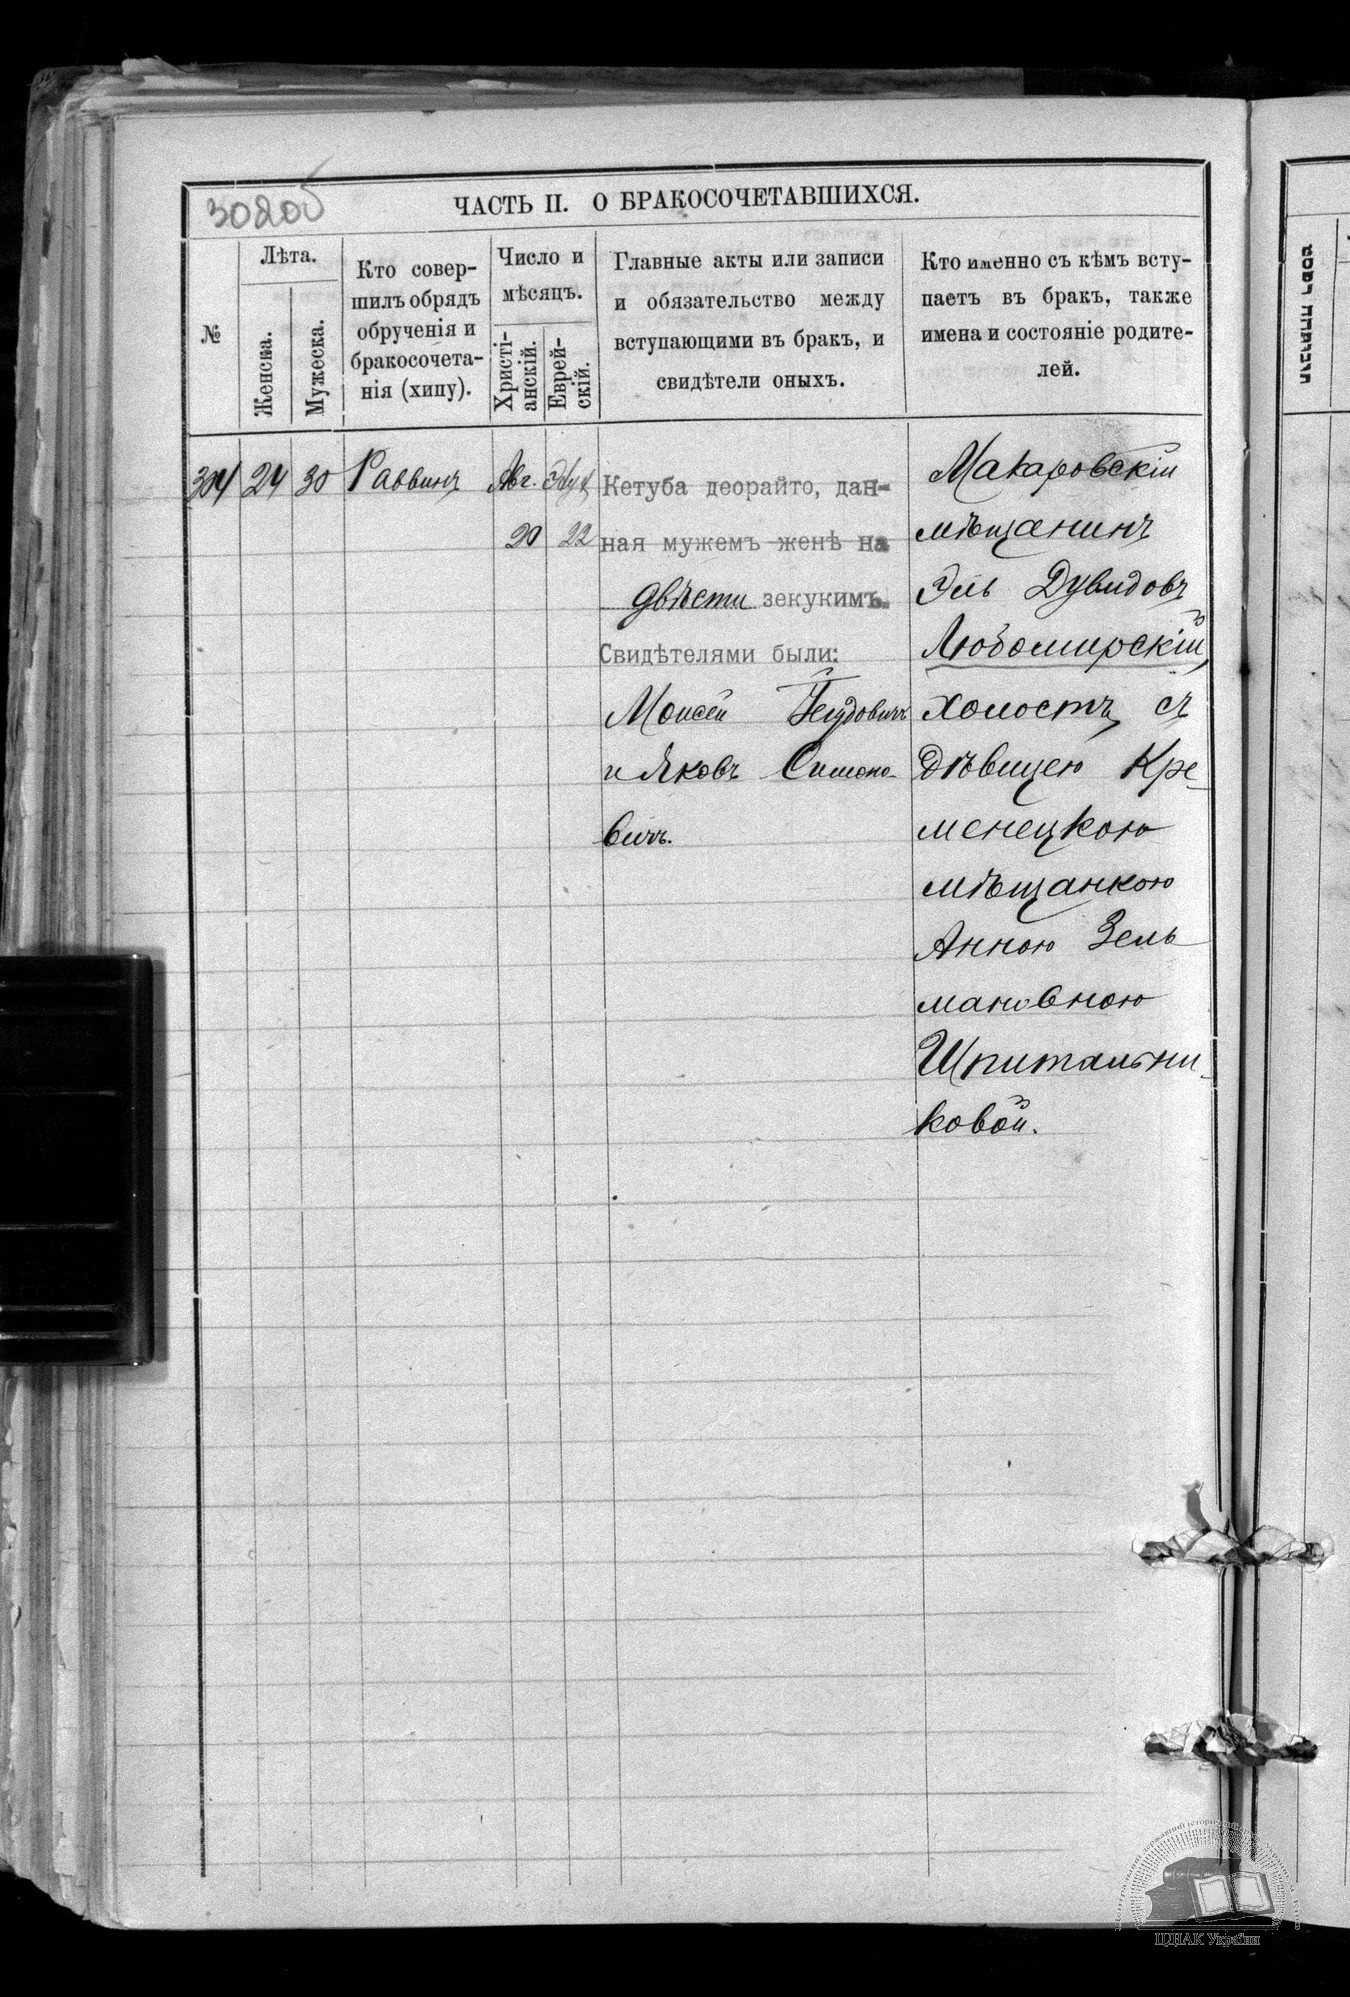 308об
ЧАСТЬ II. О БРАКОСОЧЕТАВШИХСЯ.
№
Лѣта.
Женска.
Мужеска.
Кто совер-
шилъ обрядъ
обрученія и
бракосочета-
нія (хипу).
Число и
мѣсяцъ.
Христі-
анскій.
Еврей-
скій.
Главные акты или записи
и обязательство между
вступающими въ бракъ, и
свидѣтели оныхъ.
Кто именно съ кѣмъ всту-
паетъ въ бракъ, также
имена и состояніе родите-
лей.
304 24 30 Раввинъ Авг. Элул
20 22
Кетуба деорайто, дан-
ная мужемъ женѣ на
двѣсти зекукимъ.
Свидѣтелями были:
Моисей
и Яковъ Симоно-
вичъ.
Макаровскій
мѣщанинъ
Эль Дувидовъ
Любомирскій,
холостъ, съ
дѣвицею Кре-
менецкою
мѣщанкою
Анною Зель
мановною
Шпитальни-
ковой.
ЦДІАК України